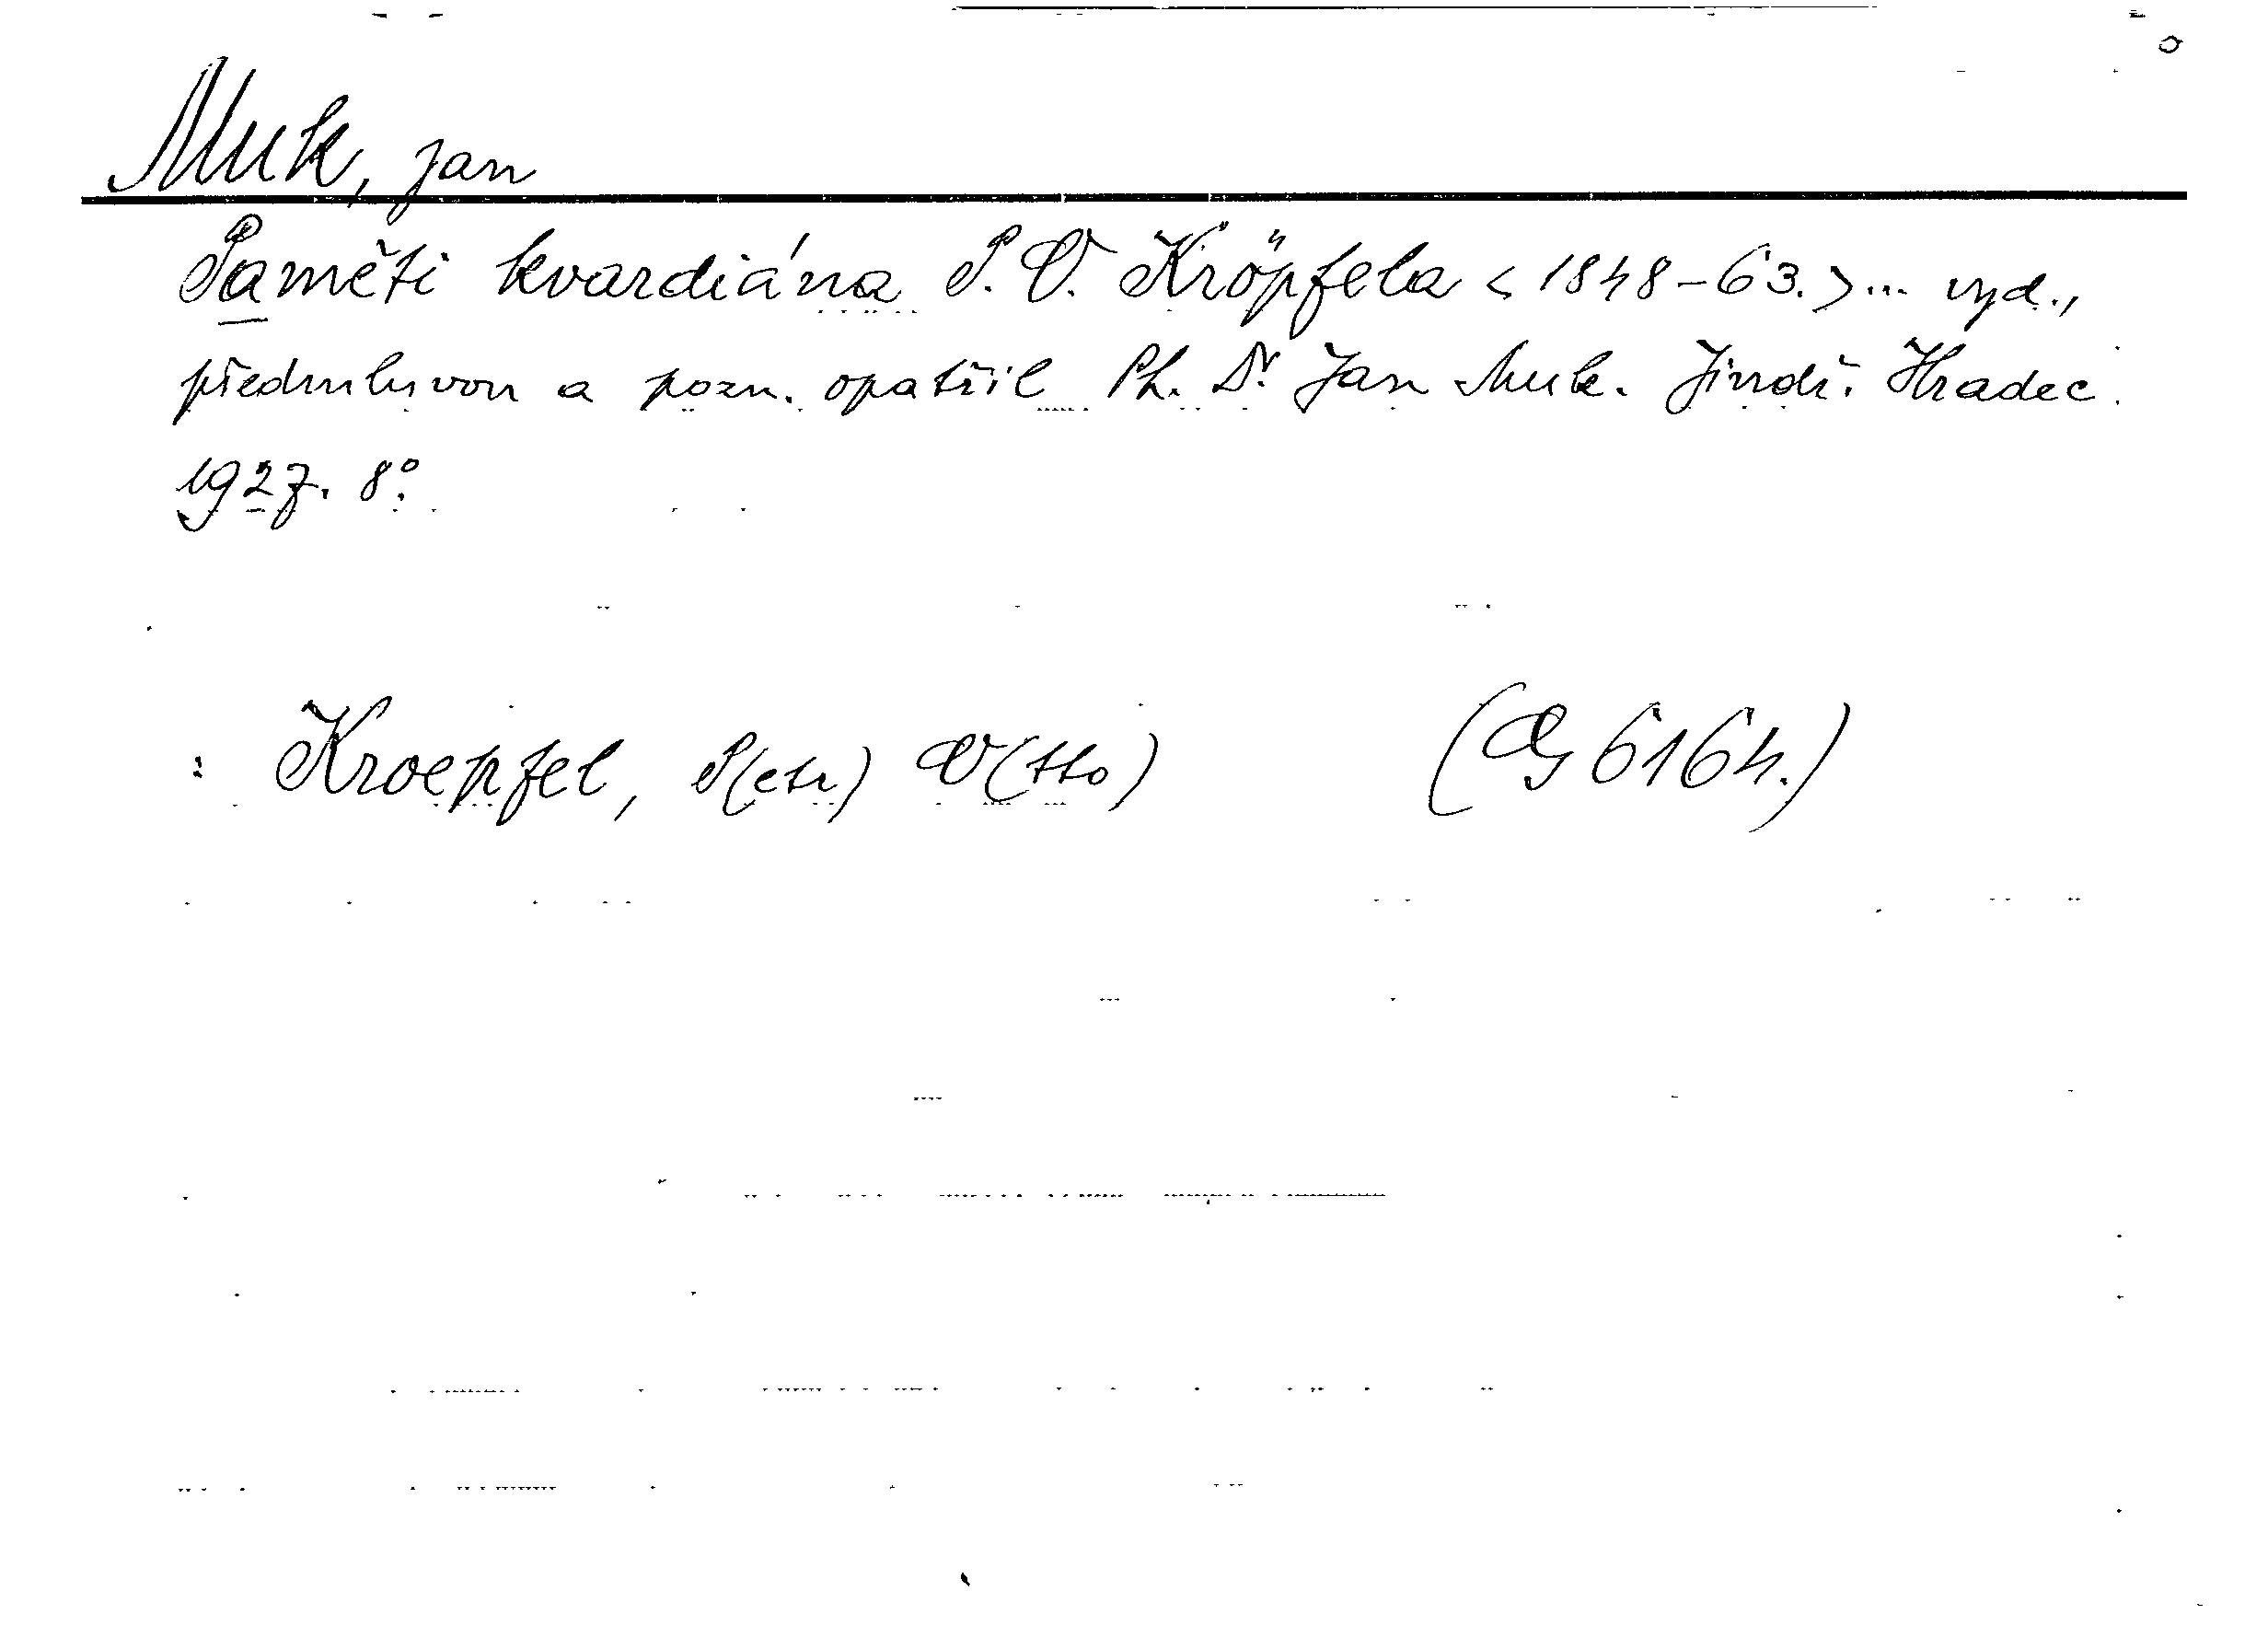 Muk, Jan
Paměti kvardiána P. O. Kröpfela < 1848-63. > ... vyd.,
předmluvou a pozn. opatřil Ph. Dr. Jan Muk. Jindř. Hradec.
1927. 8°.
: Kroepfel, P(etr) O(tto) 6164.)